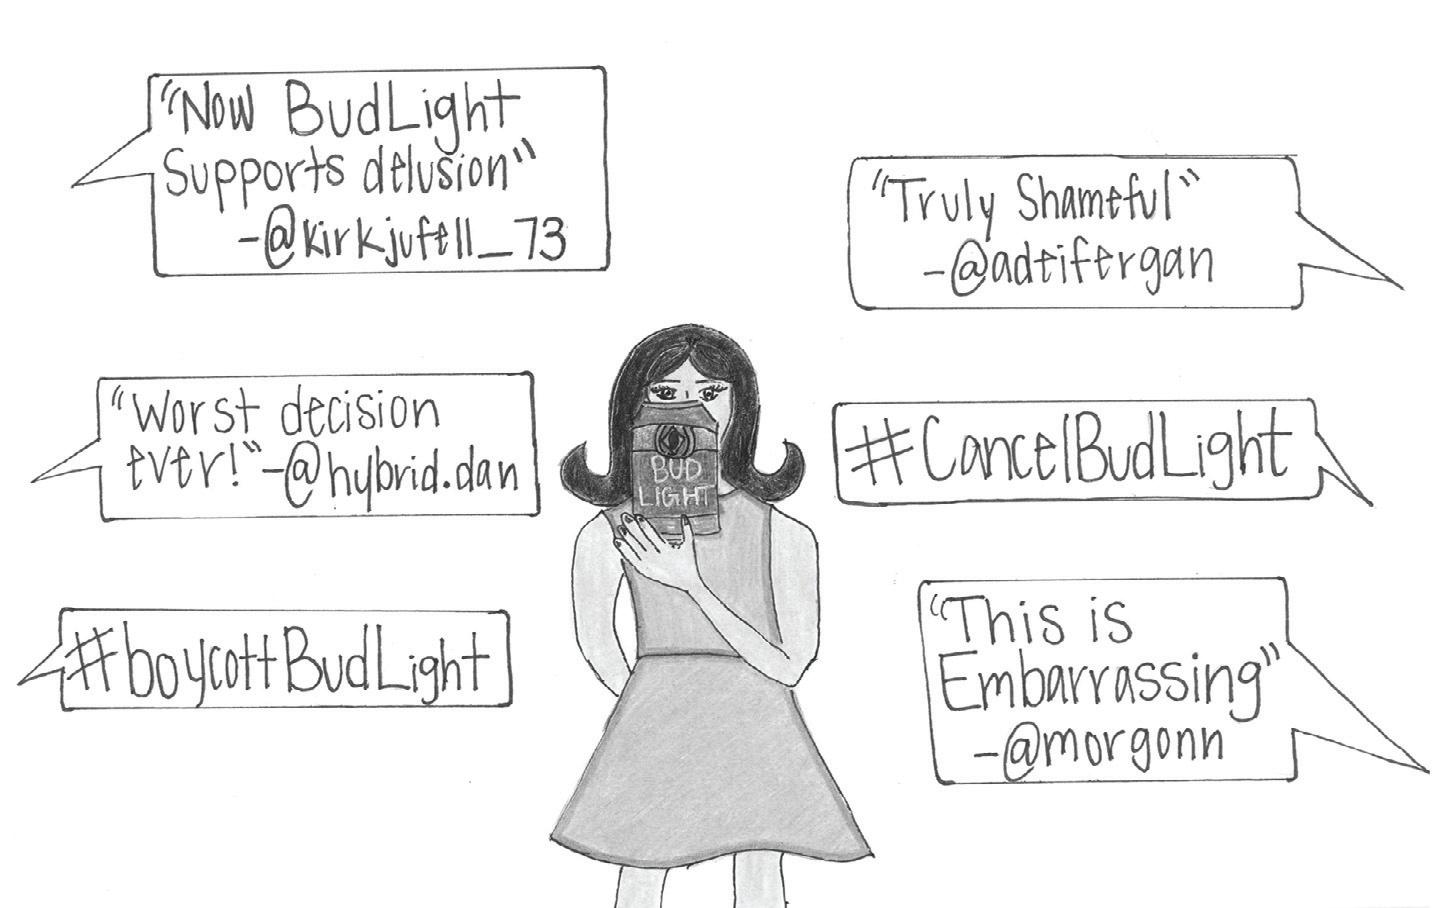 "Now BudLight
Supports delusion"
-@kirkjufell_73
"Truly Shameful"
-@adeifergan
"Worst decision
ever!"-@hybrid.dan
#CancelBudLight
BUD
LIGHT
#boycottBudLight
"This is
Embarrassing"
-@morgonn